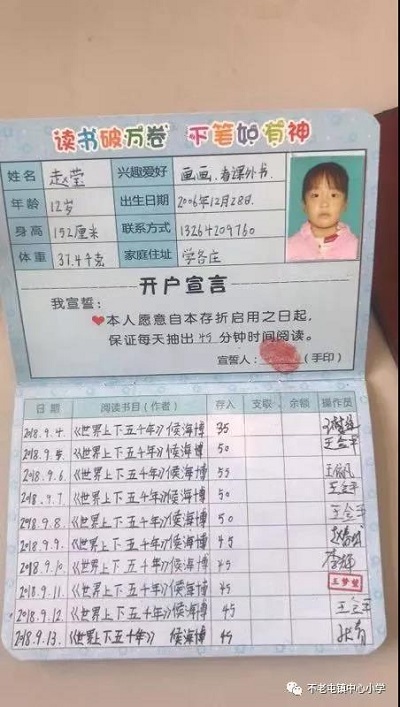 读书破万卷 下笔如有神
姓名 赵莹 兴趣爱好 画画,看课外书.
年龄 12岁 出生日期 2006年12月28日.
身高 152厘米 联系方式 13264209760
体重 37.4千克 家庭住址 学各庄
开户宣言
我宣誓:
❤本人愿意自本存折启用之日起,
保证每天抽出 45 分钟时间阅读。
宣誓人: (手印)
日期 阅读书目(作者) 存入 支取 余额 操作员
2018.9.4. 《世界上下五千年》侯海博 35
2018.9.5. 《世界上下五千年》侯海博 50 王金平
2018.9.6. 《世界上下五千年》侯海博 55
2018.9.7 《世界上下五千年》侯海博 50 王金平
2018.9.8. 《世界上下五千年》侯海博 50 王金平
2018.9.9. 《世界上下五千年》侯海博 45
2018.9.10. 《世界上下五千年》侯海博 45
2018.9.11. 《世界上下五千年》侯海博 45 王梦莹
2018.9.12. 《世界上下五千年》侯海博 45 王金平
2018.9.13. 《世界上下五千年》 侯海博 45
不老屯镇中心小学